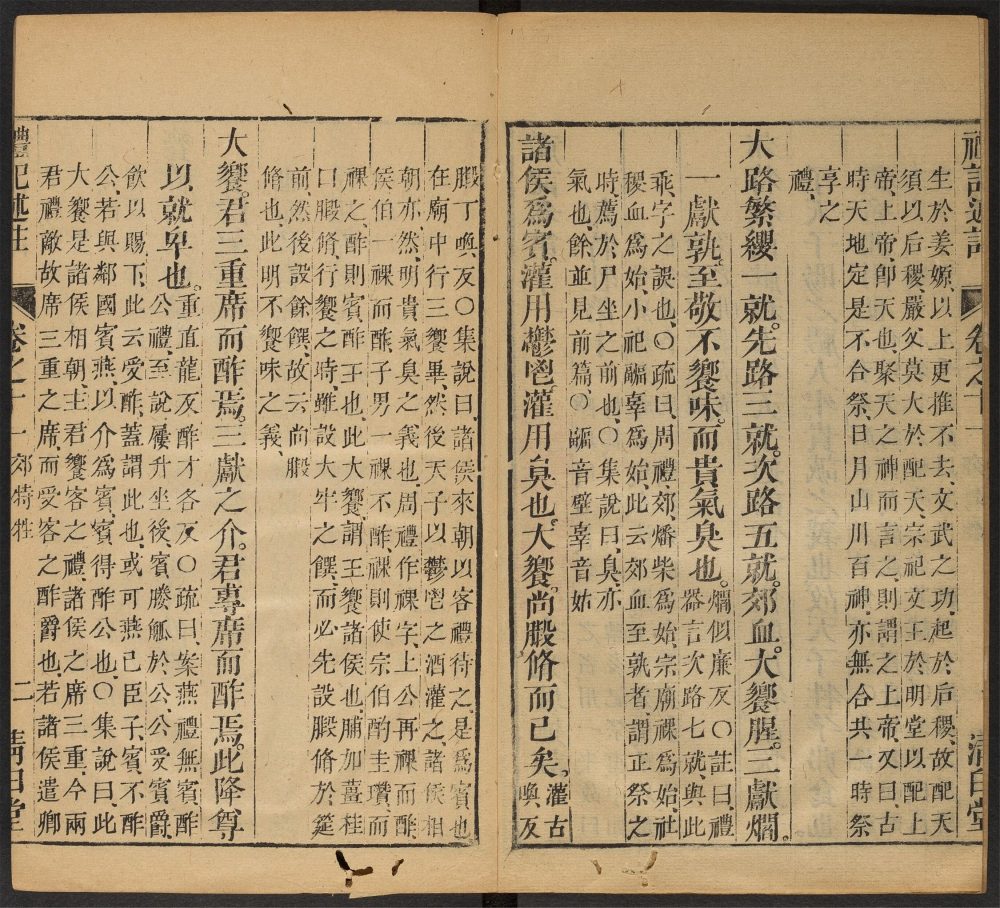 生於姜嫄以上更推不去文武之功起於后稷故配天
須以后稷嚴父莫大於配天宗祀文王於明堂以配上
帝上帝卽天也聚天之神而言之則謂之上帝又曰古
時天地定是不合祭日月山川百神亦無合共一時祭
享之
禮
大路繁纓一就先路三就次路五就郊血大饗腥三獻爓
一獻孰至敬不饗味而貴氣臭也爓似廉反○註曰禮
器言次路七就與此
乖字之誤也○疏曰周禮郊燔柴爲始宗廟祼爲始社
稷血爲始小祀疈辜爲始此云郊血至孰者謂正祭之
時薦於尸坐之前也○集說曰臭亦
氣也餘並見前篇○疈音璧辜音姑
諸侯爲賓灌用鬱鬯灌用臭也大饗尚腶脩而已矣灌古
喚反
腶丁喚反○集說曰諸侯來朝以客禮待之是爲賓也
在廟中行三饗畢然後天子以鬱鬯之酒灌之諸侯相
朝亦然明貴氣臭之義也周禮作祼字上公再祼而酢
侯伯一祼而酢子男一祼不酢祼則使宗伯酌圭瓚而
祼之酢則賓酢王也此大饗謂王饗諸侯也脯加薑桂
曰腶脩行饗之時雖設大牢之饌而必先設腶脩於筵
前然後設餘饌故云尚腶
脩也此明不饗味之義
大饗君三重席而酢焉三獻之介君專席而酢焉此降尊
以就卑也重直龍反酢才各反○疏曰案燕禮無賓酢
公禮至說屨升坐後賓媵觚於公公受賓爵
飲以賜下此云受酢蓋謂此也或可燕己臣子賓不酢
公若與鄰國賓燕以介爲賓賓得酢公也○集說曰此
大饗是諸侯相朝主君饗客之禮諸侯之席三重今兩
君禮敵故席三重之席而受客之酢爵也若諸侯遣卿
禮記述註
卷之十一
郊特牲
二